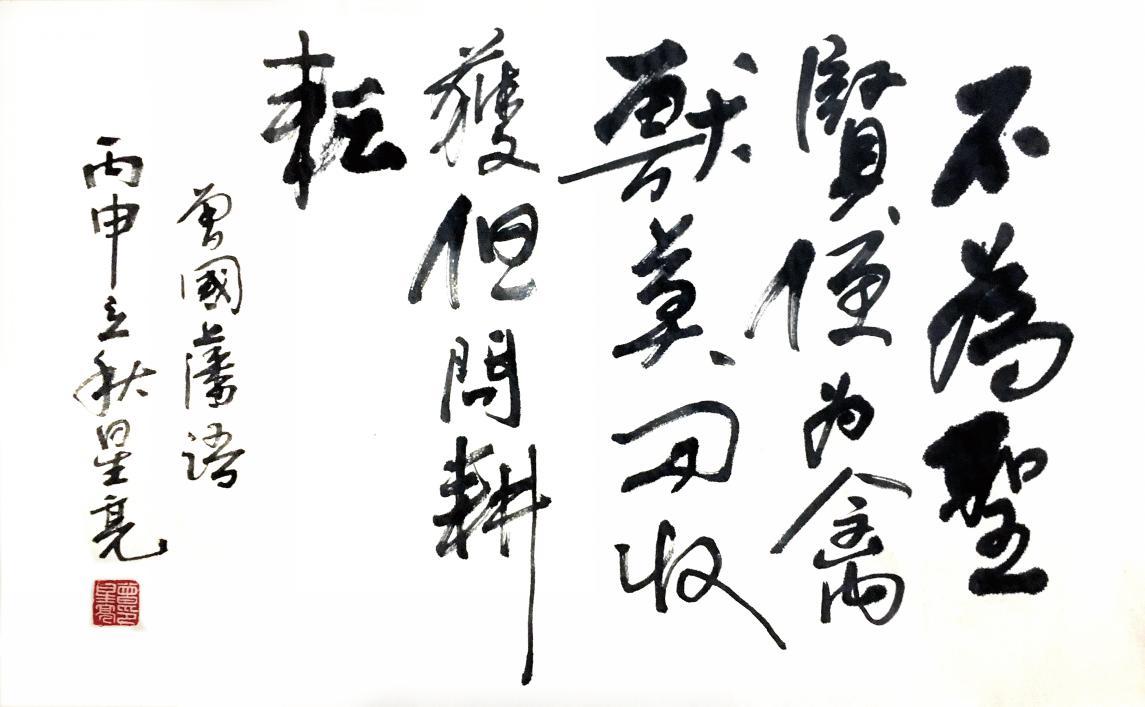 不為聖
賢便为禽
獸莫问收
獲但問耕
耘
曾國藩語
丙申立秋星亮